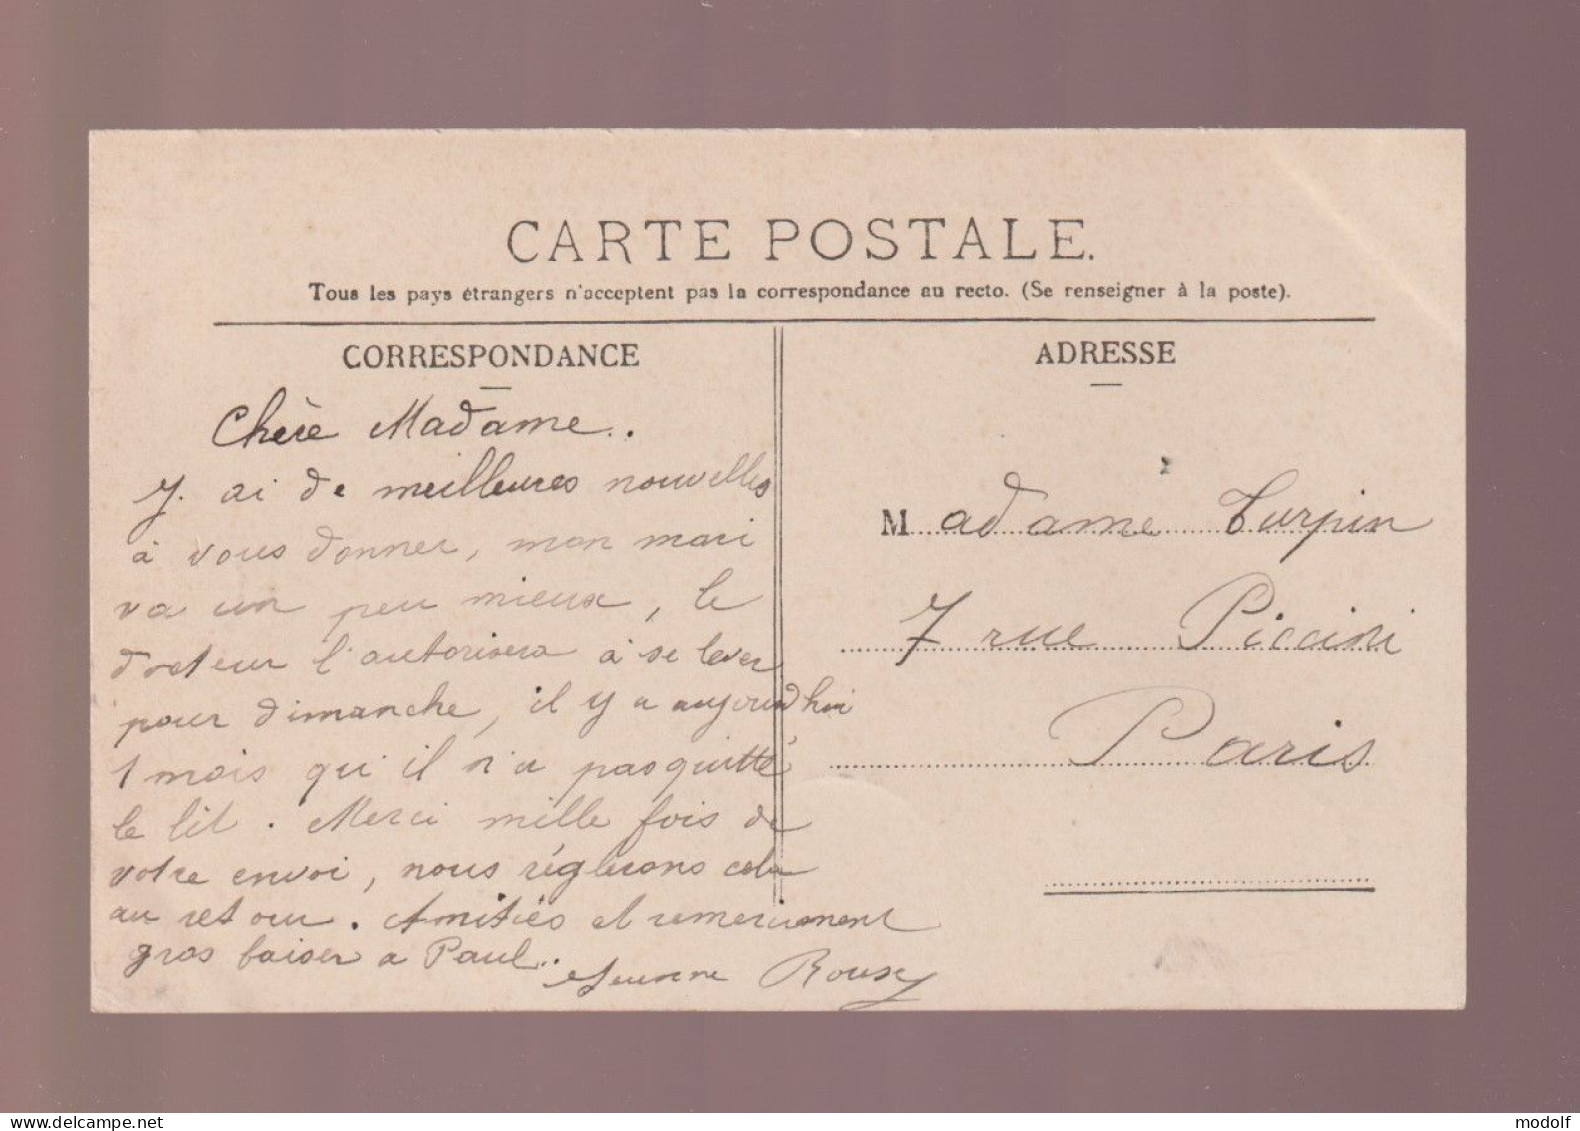 CARTE POSTALE.
Tous les pays étrangers n'acceptent pas la correspondance au recto. (Se renseigner à la poste).
CORRESPONDANCE
Chère Madame..
J. ai de meilleures nouvelles
à vous donner, mon mari
va un peu mieux, le
docteur l'autorisera à se lever
pour dimanche, il y a aujourd'hui
1 mois qu'il n'a pas quitté
le lit. Merci mille fois de
votre envoi, nous règlerons cela
au retour. Amitiés et remerciement
gros baiser a Paul..
Jeanne Roux
ADRESSE
Madame Turpin
7 rue Piccini
Paris
delcampe.net
modolf